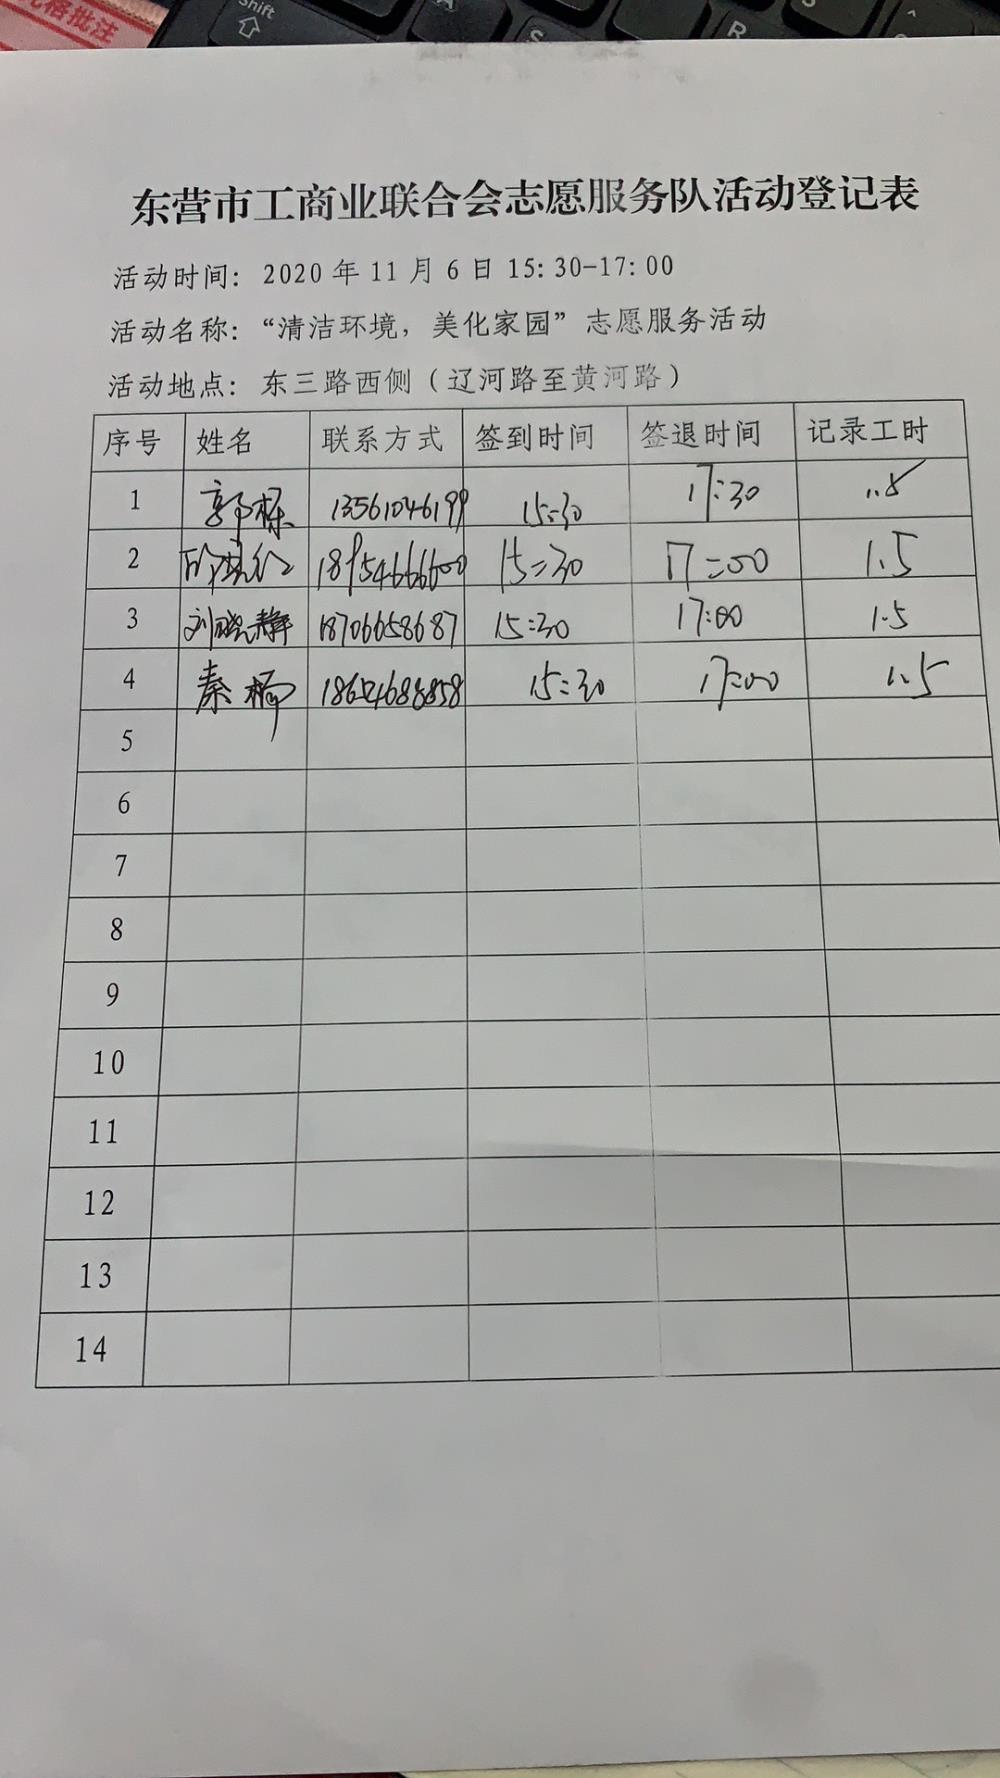 格批注
Shift
A
S
R
东营市工商业联合会志愿服务队活动登记表
活动时间：2020 年 11 月 6 日 15:30-17:00
活动名称：“清洁环境，美化家园”志愿服务活动
活动地点：东三路西侧（辽河路至黄河路）
序号 姓名 联系方式 签到时间 签退时间 记录工时
1 郭栋 13561046199 15:30 17:30 1.5
2 15:30 17:00 1.5
3 刘晓静 18706658687 15:30 17:00 1.5
4 秦楠 15:30 17:00 1.5
5
6
7
8
9
10
11
12
13
14